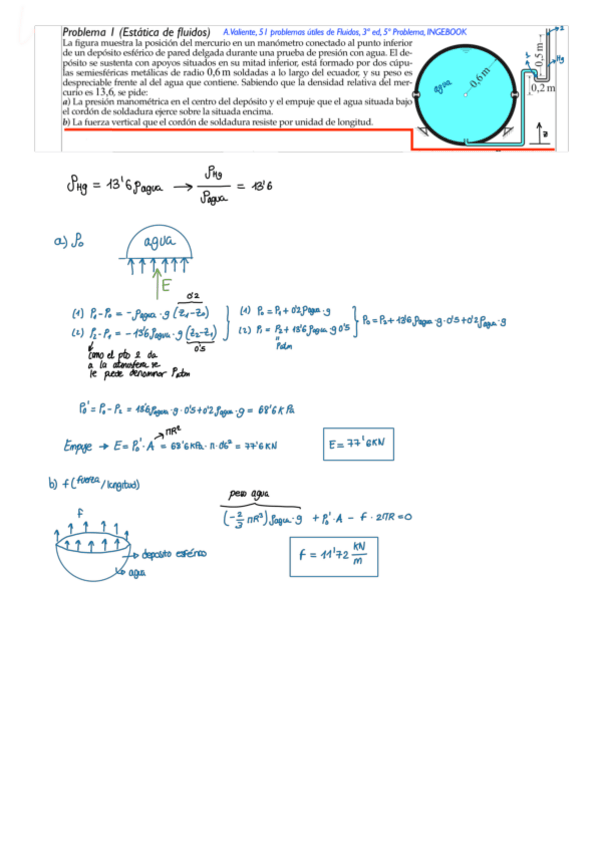 Problema 1 (Estática de fluidos) A.Valiente, 51 problemas útiles de Fluidos, 3ª ed, 5º Problema, INGEBOOK
La figura muestra la posición del mercurio en un manómetro conectado al punto inferior
de un depósito esférico de pared delgada durante una prueba de presión con agua. El de-
pósito se sustenta con apoyos situados en su mitad inferior, está formado por dos cúpu-
las semiesféricas metálicas de radio 0,6 m soldadas a lo largo del ecuador, y su peso es
despreciable frente al del agua que contiene. Sabiendo que la densidad relativa del mer-
curio es 13,6, se pide:
a) La presión manométrica en el centro del depósito y el empuje que el agua situada bajo
el cordón de soldadura ejerce sobre la situada encima.
b) La fuerza vertical que el cordón de soldadura resiste por unidad de longitud.
agua
0,6 m
0,5 m
Hg
0,2 m
2
z
ρHg = 13'6 ρagua → ρHg/ρagua = 13'6
a) P₀
agua
E
0'2
(1) P₁-P₀ = -ρagua · g (z₁-z₀) (1) P₀ = P₁ + 0'2 ρagua · g
(2) P₂-P₁ = -13'6 ρagua · g (z₂-z₁) (2) P₁ = P₂ + 13'6 ρagua · g 0'5 P₀ = P₂ + 13'6 ρagua · g · 0'5 + 0'2 ρagua · g
0'5
Patm
como el pto 2 da
a la atmosfera se
le puede denominar Patm
P₀' = P₀ - P₂ = 13'6 ρagua · g · 0'5 + 0'2 ρagua · g = 68'6 KPa
πR²
Empuje → E = P₀' · A = 68'6 KPa · π · 0'6² = 77'6 KN E = 77'6 KN
b) f (fuerza/longitud)
peso agua
f
(-2/3 πR³) ρagua · g + P₀' · A - f · 2πR = 0
deposito esférico
agua
f = 11'72 KN/m